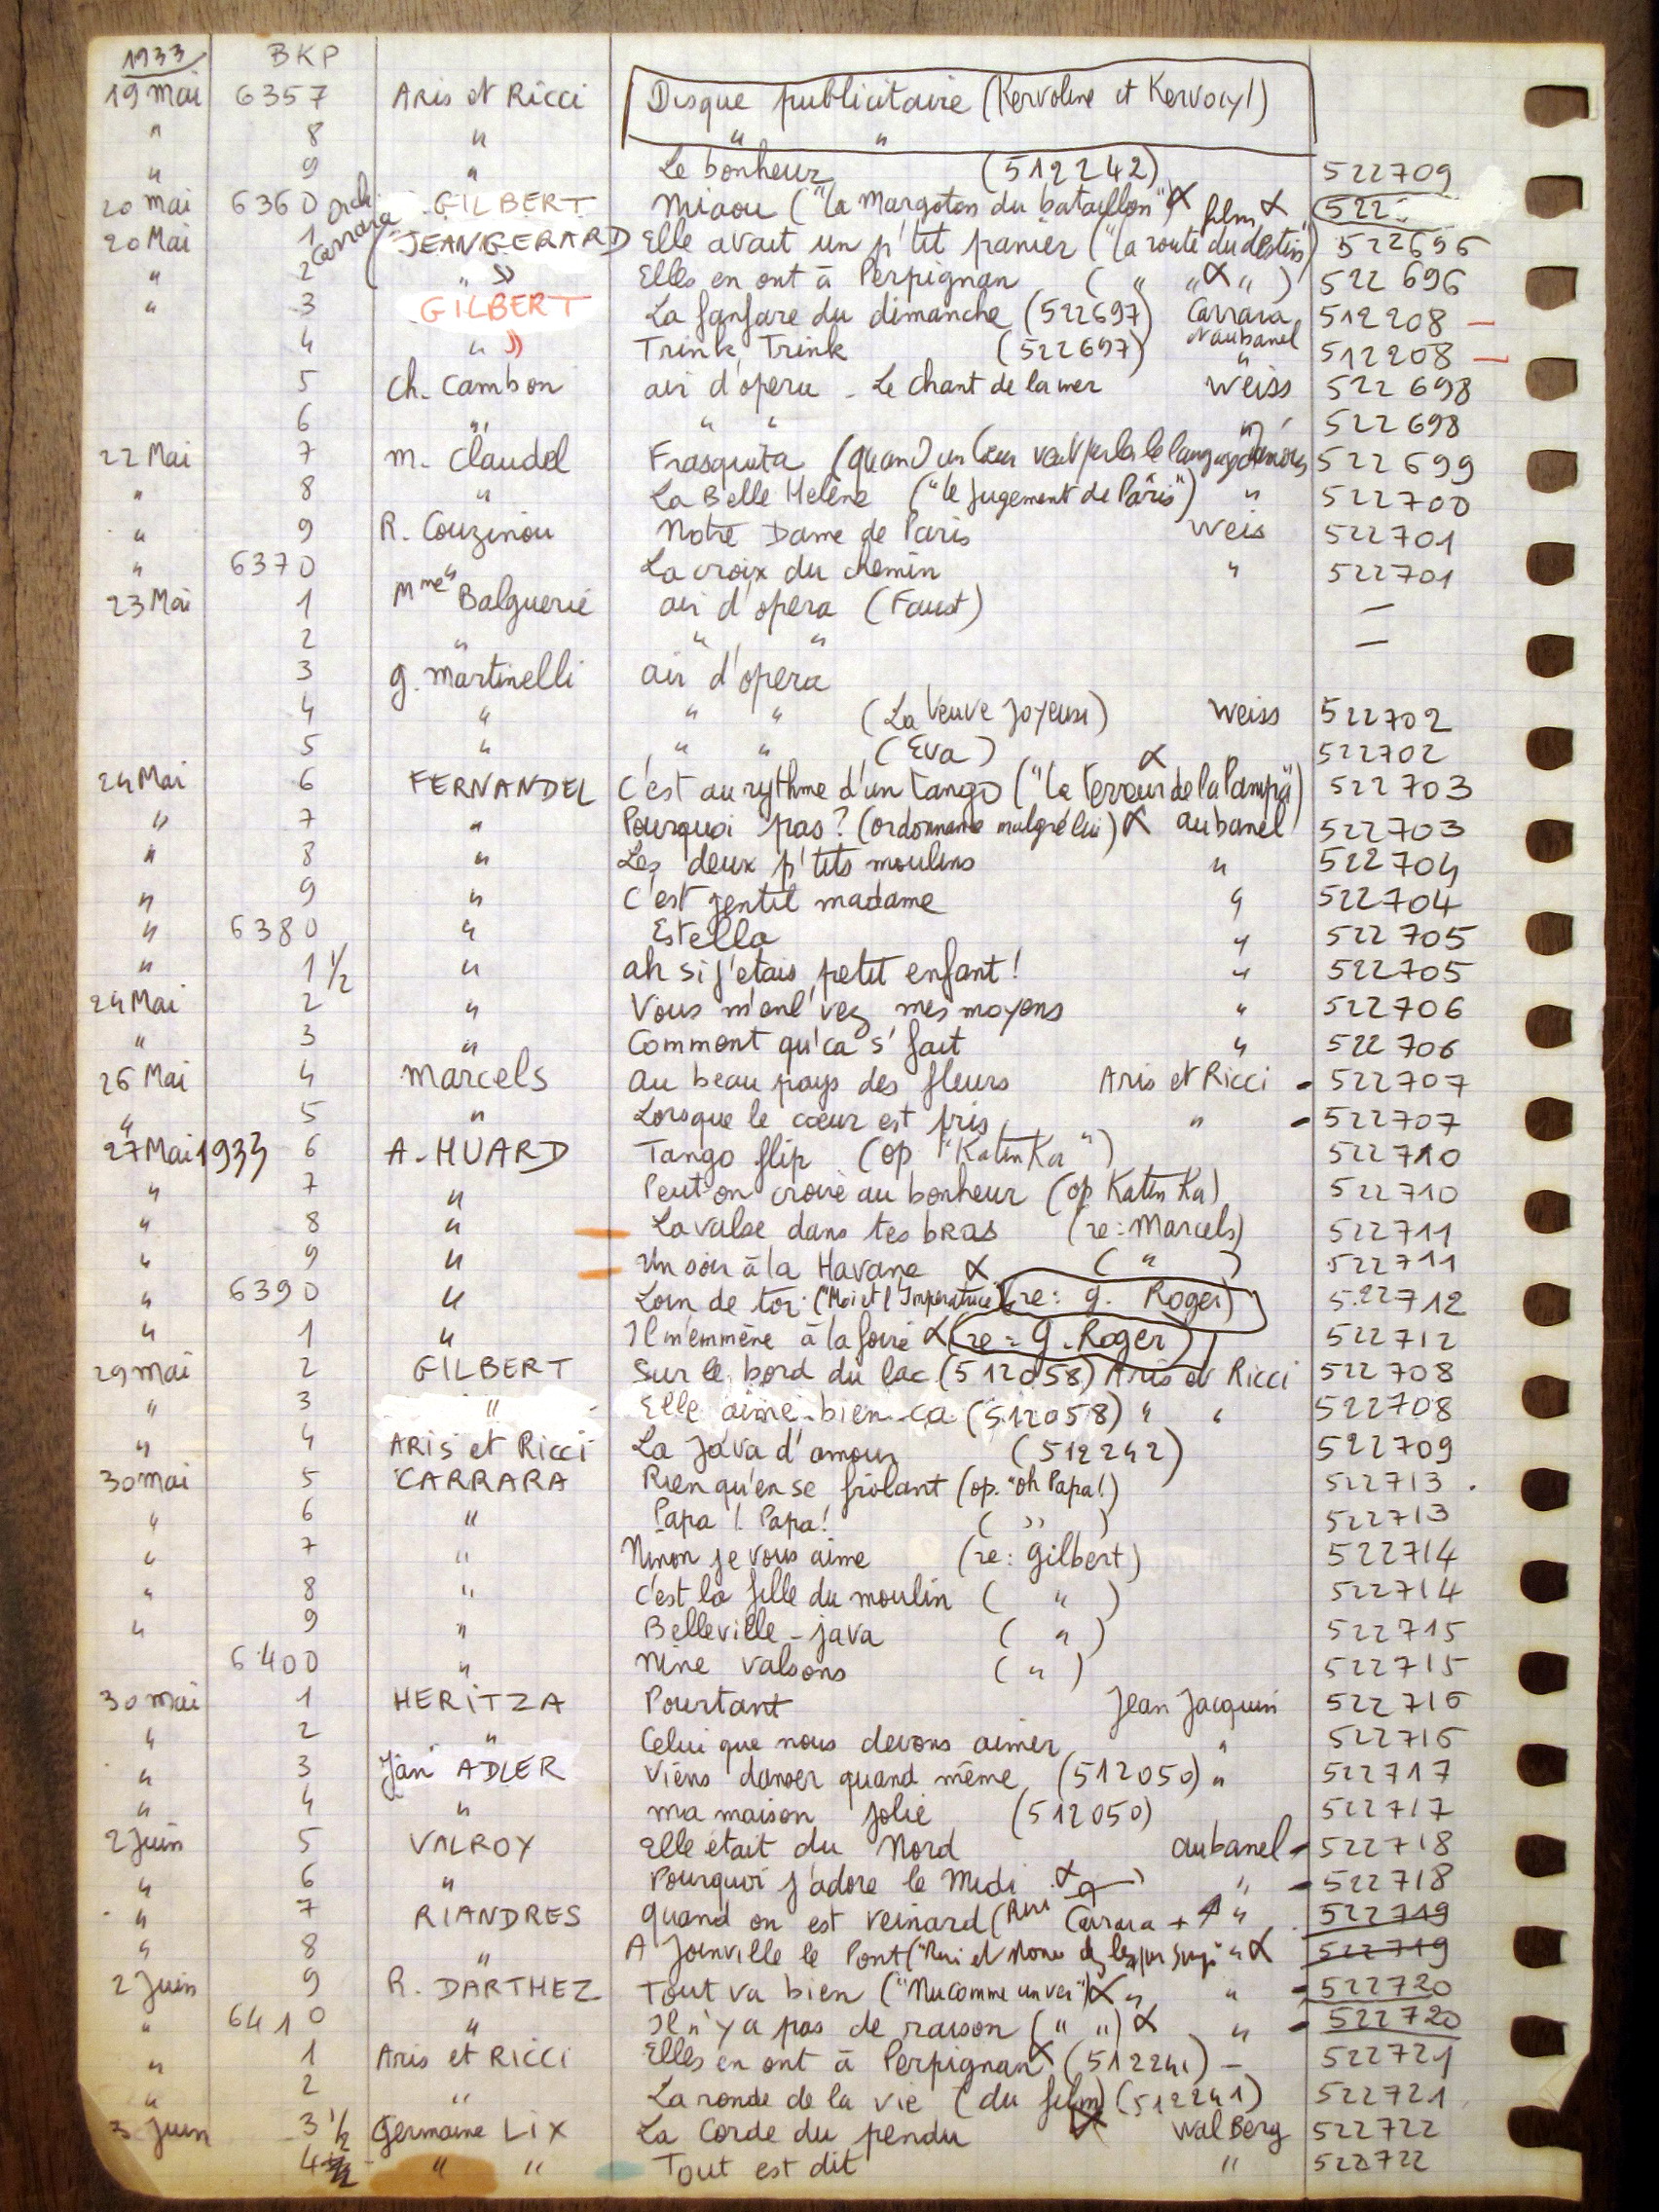 1933 BKP
19 Mai 6357 Aris et Ricci Disque publicitaire (Kervoline et Kervocyl)
" 8 " " "
" 9 " Le bonheur (512242) 522709
20 Mai 6360 Orch Carrara GILBERT Miaou ("La Margoton du bataillon") α film α 522
20 Mai 1 JEAN GERARD Elle avait un p'tit panier ("la route du destin") 522696
" 2 " " Elles en ont à Perpignan ( " " α " ) 522696
" 3 GILBERT La fanfare du dimanche (522697) Carrara 512208 —
4 " " Trink Trink (522697) et aubanel " 512208 —
5 Ch. Cambon air d'opera - Le chant de la mer Weiss 522698
6 " " " " 522698
22 Mai 7 M. Claudel Frasquita (quand un coeur veut parler le langage d'amour 522699
" 8 " La Belle Helène ("le jugement de Pâris") " 522700
" 9 R. Couzinou Notre Dame de Paris Weis 522701
" 6370 " La croix du chemin " 522701
23 Mai 1 Mme Balguerie air d'opera (Faust) —
2 " " " —
3 g. martinelli air d'opera
4 " " " (La Veuve Joyeuse) Weiss 522702
5 " " " (Eva) 522702
24 Mai 6 FERNANDEL C'est au rythme d'un tango ("Le Terreur de la Pampa") α 522703
" 7 " Pourquoi pas? (ordonnance malgré lui) α aubanel 522703
" 8 " Les deux p'tits moulins " 522704
" 9 " C'est gentil madame " 522704
" 6380 " Estella " 522705
" 1 1/2 " ah si j'etais petit enfant! " 522705
24 Mai 2 " Vous m'enl'vez mes moyens " 522706
" 3 " Comment qu'ca s'fait " 522706
26 Mai 4 Marcels Au beau pays des fleurs Aris et Ricci - 522707
" 5 " Lorsque le cœur est pris " - 522707
27 Mai 1933 6 A. HUARD Tango flip (op "Katinka") 522710
" 7 " Peut on croire au bonheur (op Katinka) 522710
" 8 " La valse dans tes bras (re: Marcels) 522711
" 9 " Un soir à la Havane α ( " ) 522711
" 6390 " Loin de toi ("Moi et l'Impératrice) (re: g. Roger) 522712
" 1 " Il m'emmène à la foire α (re: g. Roger) 522712
29 mai 2 GILBERT Sur le bord du lac (512058) Aris et Ricci 522708
" 3 " Elle aime bien ça (512058) " " 522708
" 4 ARIS et Ricci La Java d'amour (512242) 522709
30 mai 5 CARRARA Rien qu'en se frôlant (op. "oh Papa!) 522713
" 6 " Papa! Papa! ( " ) 522713
" 7 " Ninon je vous aime (re: gilbert) 522714
" 8 " c'est la fille du moulin ( " ) 522714
" 9 " Belleville-java ( " ) 522715
6400 " Nine valsons ( " ) 522715
30 mai 1 HERITZA Pourtant Jean Jacquin 522716
" 2 " Celui que nous devons aimer " 522716
" 3 Jan ADLER Viens danser quand même (512050) " 522717
" 4 " ma maison jolie (512050) 522717
2 Juin 5 VALROY Elle était du Nord aubanel - 522718
" 6 " Pourquoi j'adore le Midi α " - 522718
" 7 RIANDRES quand on est veinard ( Carrara + " 522719
" 8 " A Joinville le Pont " α 522719
2 Juin 9 R. DARTHEZ Tout va bien ("Nu comme un ver") α " " - 522720
" 6410 " Il n'y a pas de raison (" ") α " - 522720
" 1 Aris et RICCI Elles en ont à Perpignan α (512241) - 522721
" 2 " La ronde de la vie (du film) (512241) 522721
3 Juin 3 1/2 Germaine LIX La Corde du pendu Wal Berg 522722
4 " " Tout est dit " 522722